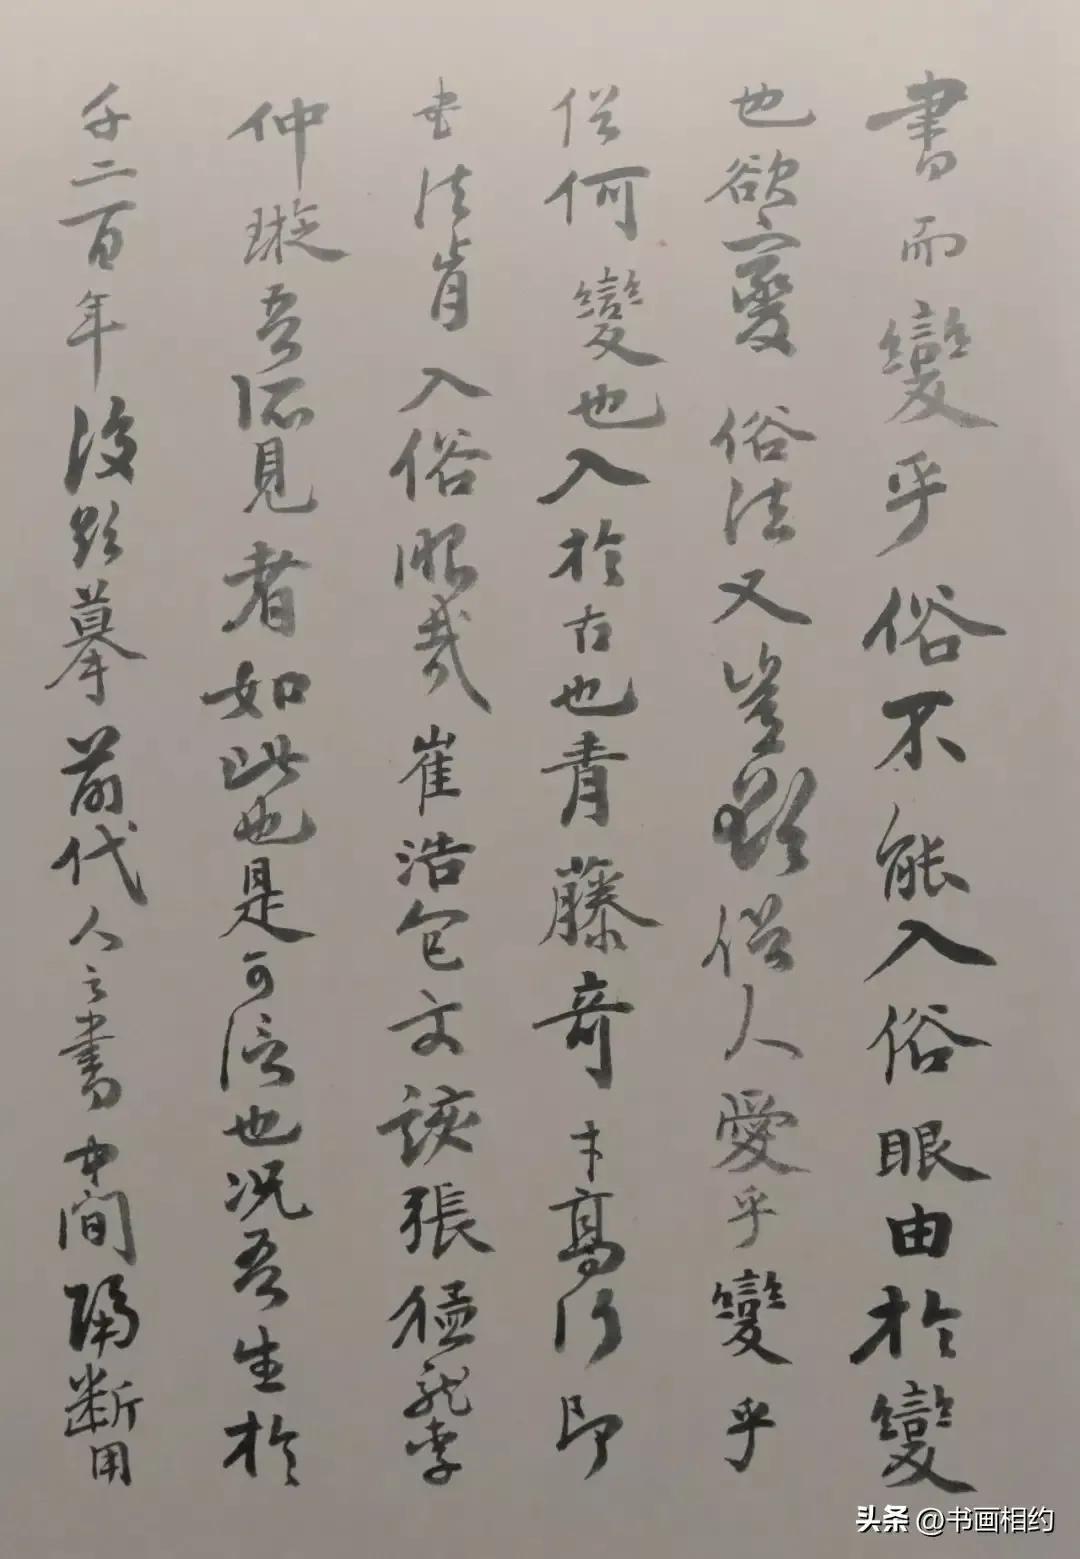 書而變乎俗不能入俗眼由於變
也欲變俗法又豈能俗人愛乎變乎
俗何變也入於古也青藤奇才高行即
書法肯入俗眼哉崔浩包文該張猛龍李
仲璇吾所見者如此也是可信也况吾生於
千二百年後能摹前代人之書中间隔断用
头条 @书画相约